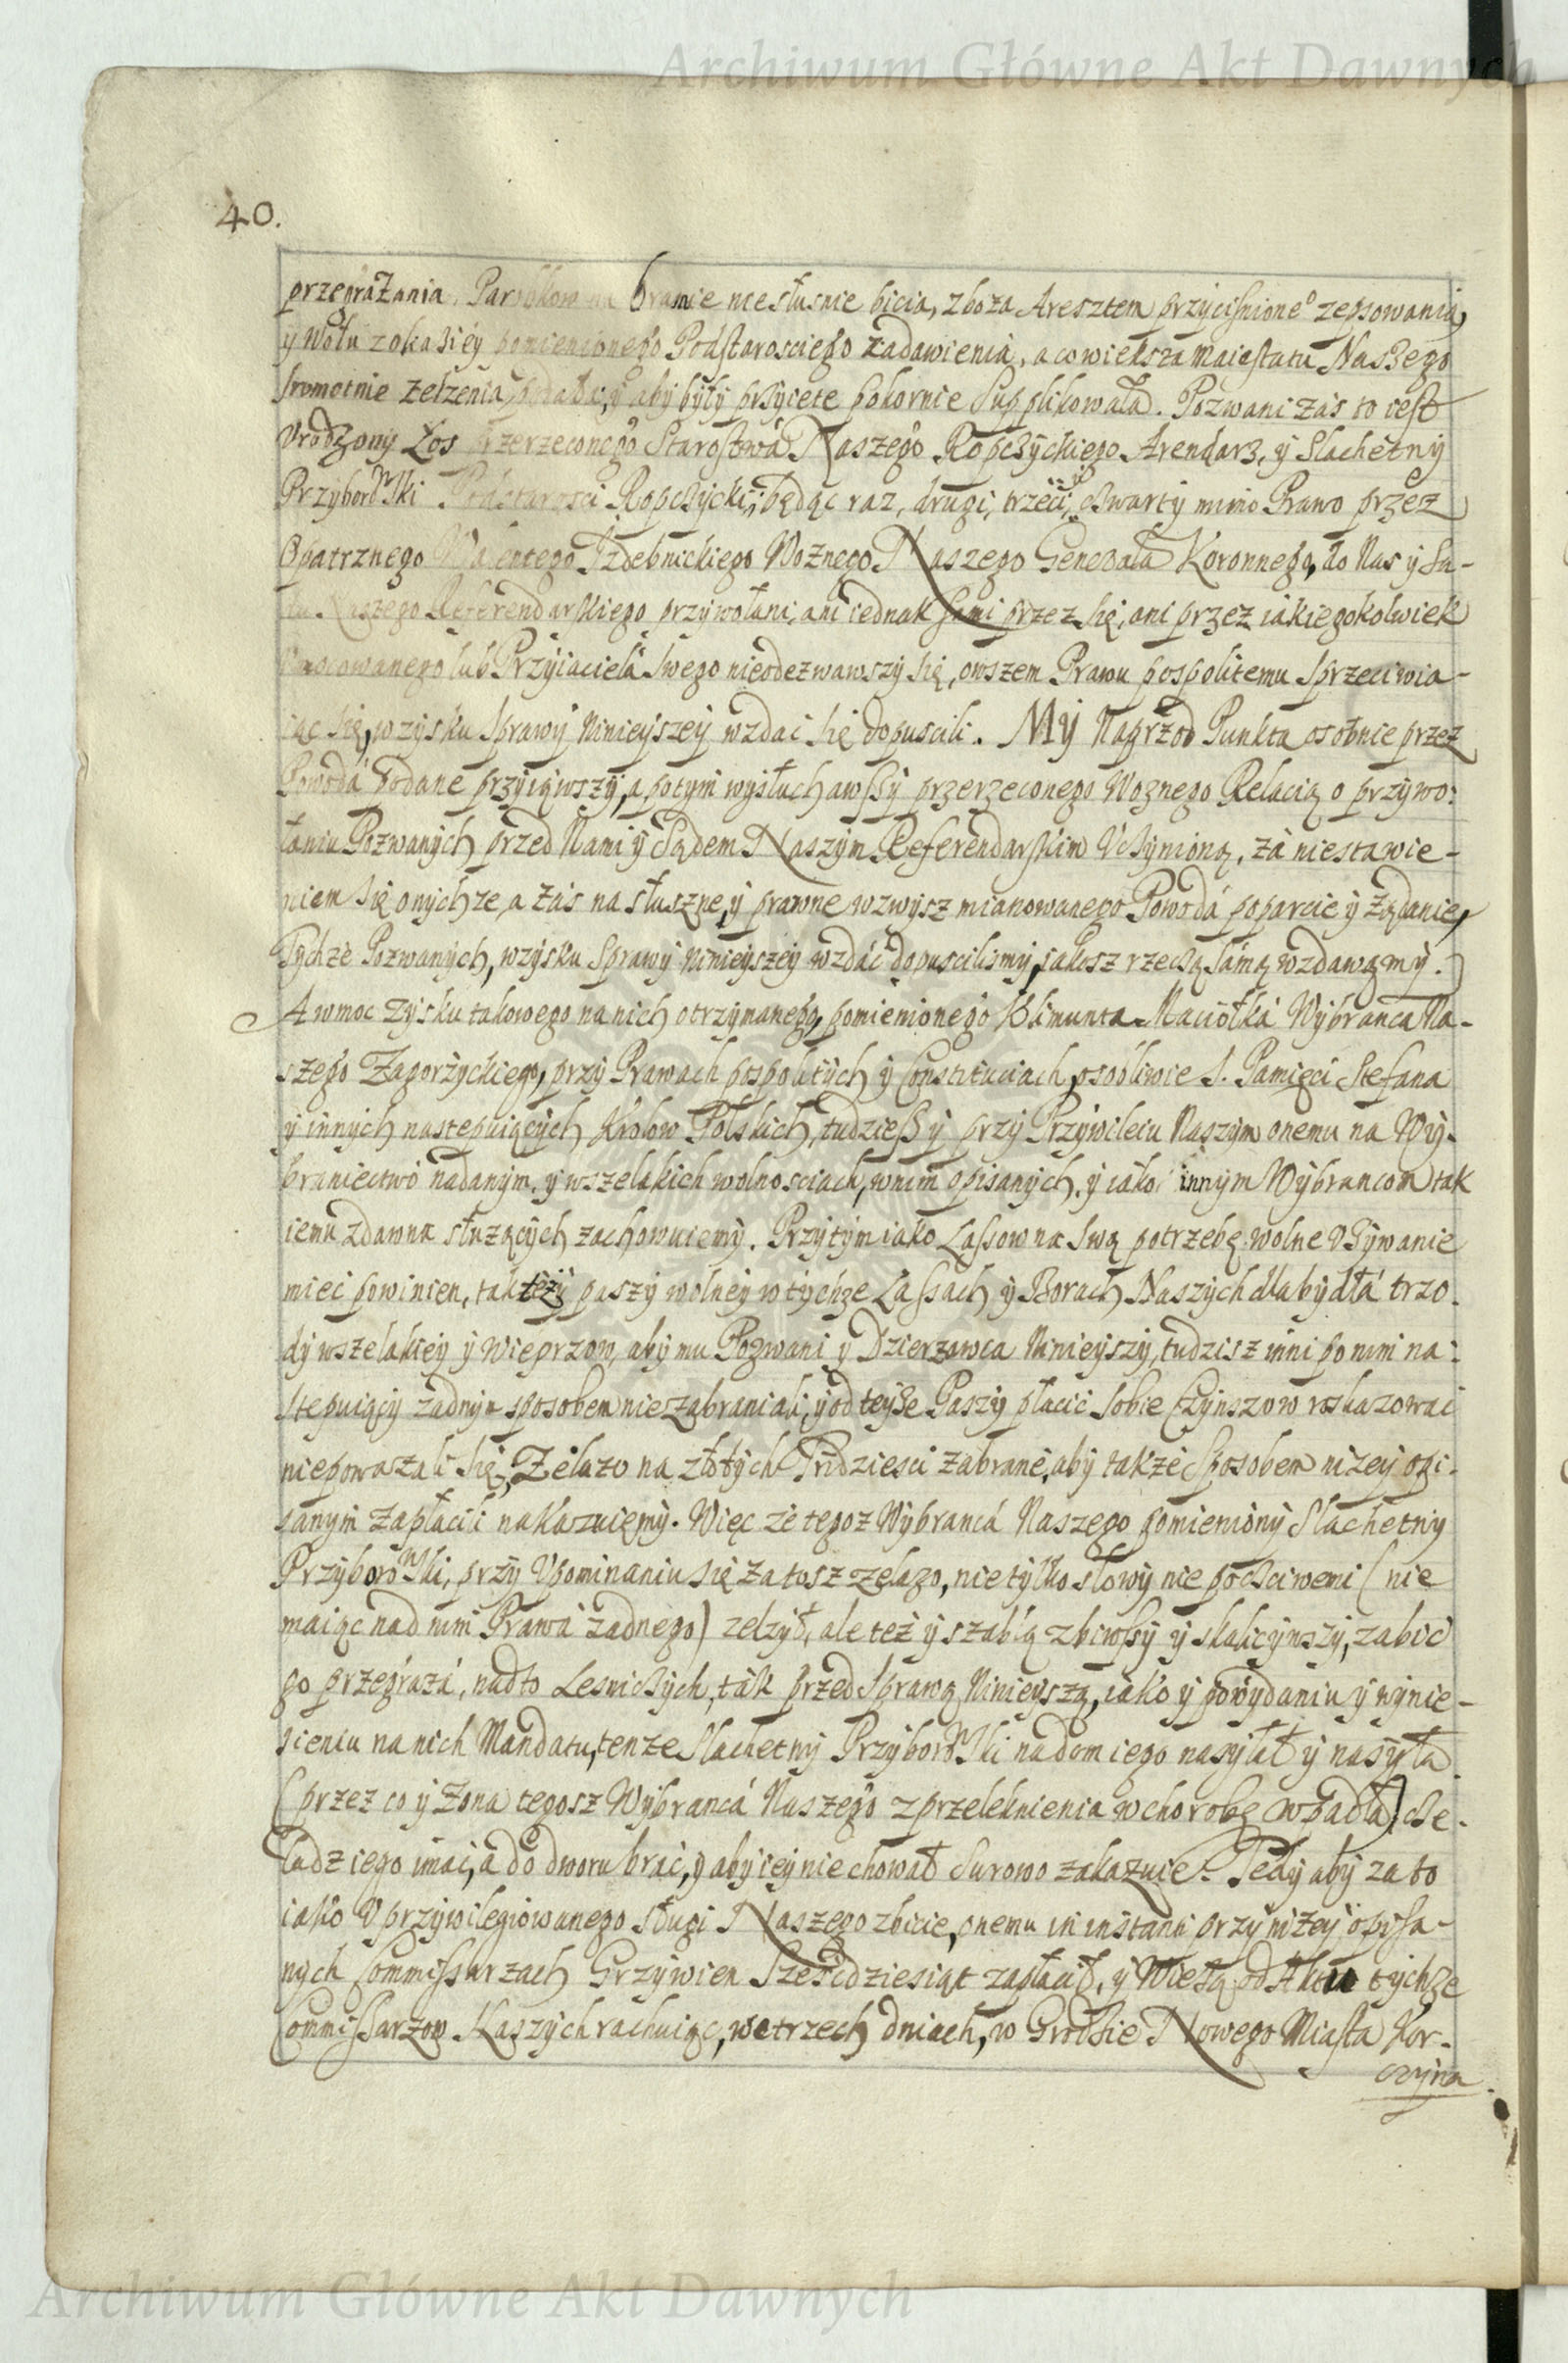 Archiwum Główne Akt Dawnych
40.
przegrażania, Parobkow na bramie niesłusnie bicia, zboża Aresztem przyciśnione° zepsowania,
y Wołu z okasiey pomienionego Podstarosciego zadawienia, a co większa Maiestatu Naszego
sromotnie zelżenia, podała, y aby były przyięte pokornie supplikowała. Pozwani zaś to iest
Vrodzony Łos przerzeconego Starostwa Naszego Ropczyckiego Arendarz, y Slachetny
Przyborowski Podstarosci Ropczycki, będąc raz, drugi, trzeci, czwarty mimo Prawo przez
Opatrznego Walentego Izdebnickiego Woznego Naszego Generała Koronnego, do Nas y Są-
du Naszego Referendarskiego przywołani, ani iednak sami przez się, ani przez iakiegokolwiek
Vmocowanego lub Przyiaciela swego nieodezwawszy się, owszem Prawu pospolitemu sprzeciwia-
iąc się, w zysku sprawy Ninieyszey wzdac się dopuscili. My Naprzod Punkta osobnie przez
Powoda podane przyiąwszy, a potym wysłuchawszy przerzeconego Woznego Relacią o przywo:
łaniu Pozwanych przed Nami y Sądem Naszym Referendarskim Vczynioną, za niestawie-
niem się onychze, a zaś na słuszne, y prawne wzwysz mianowanego Powoda poparcie y żądanie,
Tychże Pozwanych, w zysku sprawy Ninieyszey wzdać dopuscilismy, iakosz rzeczą samą wzdawamy.
A w moc zysku takowego na nich otrzymanego, pomienionego Klimunta Maciołka Wybranca Na-
szego Zagorzyckiego, przy Prawach pospolitych y Constituciach, osobliwie S. Pamięci Stefana
y innych nastepuiących Krolow Polskich, tudziesz y przy Przywileiu Naszym onemu na Wy-
braniectwo nadanym, y wszelakich wolnosciach, w nim opisanych, y iako innym Wybrancom tak
iemu zdawna służących zachowuiemy. Przytym iako Lassow na swą potrzebę wolne Vżywanie
mieć powinien, tak też y paszy wolney w tychze Lassach y Borach Naszych dla bydła trzo-
dy wszelakiey y wieprzow, aby mu Pozwani y Dzierzawca Ninieyszy, tudzisz inni po nim na:
stepuiący zadnym sposobem nie zabraniali, y od teyże Paszy płacić sobie Czynszow roskazowac
niepoważali się, Żelazo na złotych Trzdziesci zabrane, aby także sposobem nizey opi-
sanym zapłacili nakazuięmy. Więc że tegoz Wybranca Naszego pomieniony Slachetny
Przyborowski, przy Vpominaniu się za tosz żelazo, nie tylko słowy nie poczciwemi (nie
maiąc nad nim Prawa żadnego) zelżył, ale też y szablą zbiwszy y skaliczywszy, zabić
go przegraża, nadto Lesniczych, tak przed sprawą Ninieyszą, iako y po wydaniu y wynie-
sieniu na nich Mandatu, tenze Slachetny Przyborowski na dom iego nasyłał y nasyła
(przez co y Zona tegosz Wybranca Naszego z przeleknienia w chorobę wpadła) cze-
ladz iego imać, a do dworu brać, y aby iey nie chował surowo zakazuie. Tedy aby za to
iako Vprzywilegiowanego sługi Naszego zbicie, onemu in instanti przy niżey opisa-
nych Commissarzach Grzywien Szescdziesiąt zapłacił, y Wieżą od Aktu tychże
Commissarzow Naszych rachuiąc, we trzech dniach, w Grodzie Nowego Miasta Kor-
czyna
Archiwum Główne Akt Dawnych